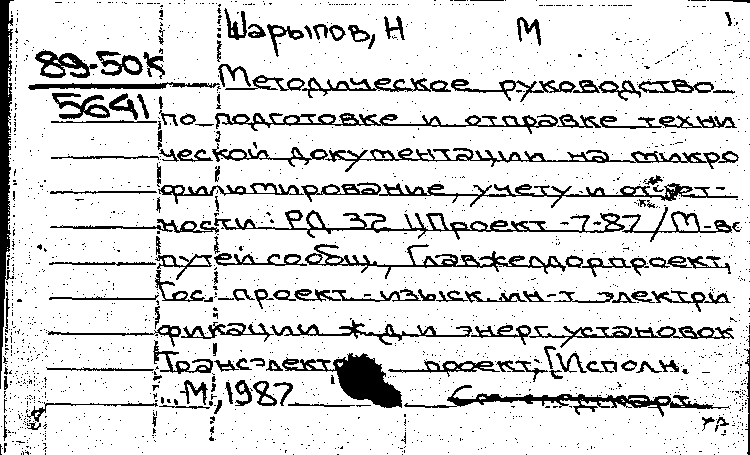 Шарыпов, Н М
89-50к
5641
Методическое руководство
по подготовке и отправке техни
ческой документации на микро
фильмирование, учету и отчет-
ности: РД 32 ЦПроект -7-87 / М-во
путей сообщ., Главжелдорпроект,
Гос. проект.-изыск. ин-т электри
фикации ж.д. и энерг. установок
Трансэлектропроект; [Исполн.
...М., 1987